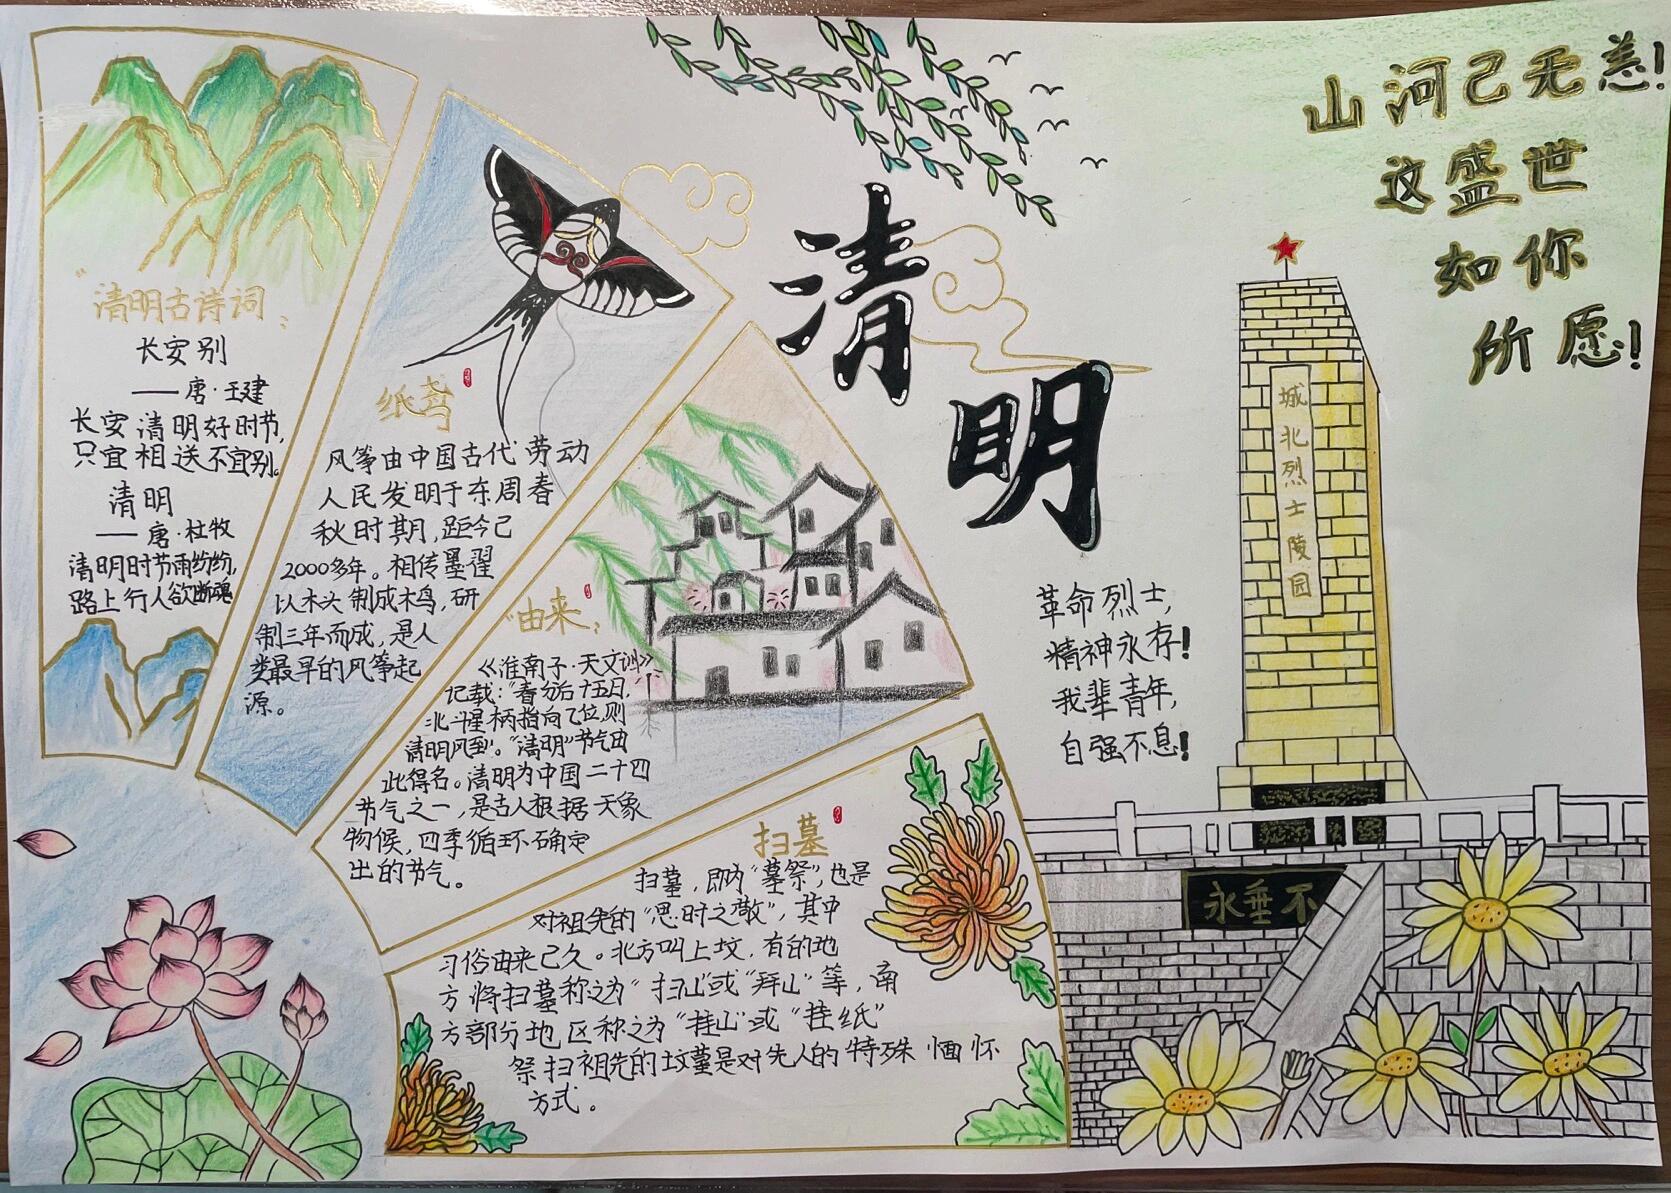 清明古诗词
长安别
——唐·王建
长安清明好时节,
只宜相送不宜别。
清明
——唐·杜牧
清明时节雨纷纷,
路上行人欲断魂
纸鸢
风筝由中国古代劳动
人民发明于东周春
秋时期,距今已
2000多年。相传墨翟
以木头制成木鸟,研
制三年而成,是人
类最早的风筝起
源。
"由来"
《淮南子·天文训》
记载:"春分后十五日,
北斗星柄指向乙位,则
清明风至"。"清明"节气由
此得名。清明为中国二十四
节气之一,是古人根据天象
物候,四季循环确定
出的节气。
扫墓
扫墓,即为"墓祭",也是
对祖先的"思时之敬",其中
习俗由来已久。北方叫上坟,有的地
方将扫墓称之为"扫山"或"拜山"等,南
方部分地区称之为"挂山"或"挂纸"
祭扫祖先的坟墓是对先人的特殊缅怀
方式。
清
明
山河已无恙!
这盛世
如你
所愿!
城北烈士陵园
革命烈士,
精神永存!
我辈青年,
自强不息!
永垂不